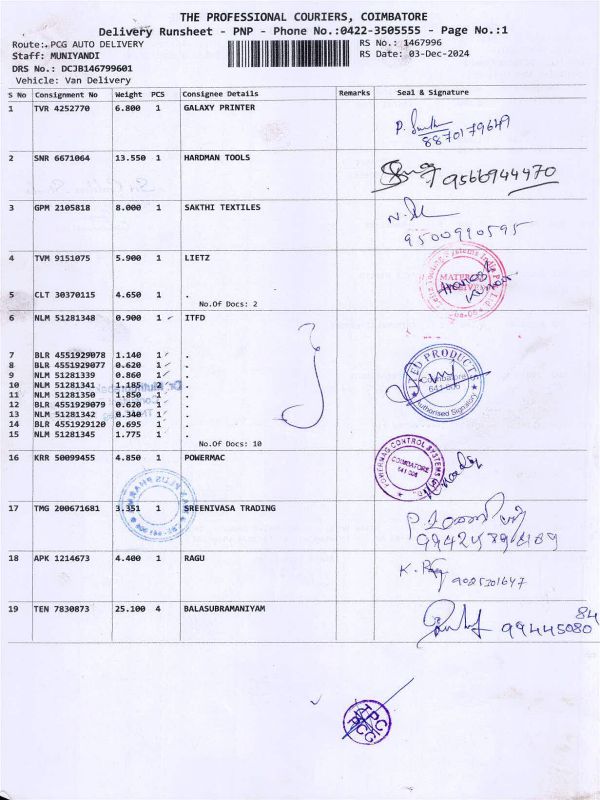 THE PROFESSIONAL COURIERS, COIMBATORE
Delivery Runsheet - PNP - Phone No.:0422-3505555 - Page No.:1
Route: PCG AUTO DELIVERY
RS No.: 1467996
Staff: MUNIYANDI
RS Date: 03-Dec-2024
DRS No.: DCJB146799601
Vehicle: Van Delivery
S No Consignment No Weight PCS Consignee Details Remarks Seal & Signature
1 TVR 4252770 6.800 1 GALAXY PRINTER
8870179649
2 SNR 6671064 13.550 1 HARDMAN TOOLS
9566944470
3 GPM 2105818 8.000 1 SAKTHI TEXTILES
9500990595
4 TVM 9151075 5.900 1 LIETZ
5 CLT 30370115 4.650 1 .
No.Of Docs: 2
6 NLM 51281348 0.900 1 ITFD
7 BLR 4551929078 1.140 1 .
8 BLR 4551929077 0.620 1 .
9 NLM 51281339 0.860 1 .
10 NLM 51281341 1.185 2 .
11 NLM 51281350 1.850 1 .
12 BLR 4551929079 0.620 1 .
13 NLM 51281342 0.340 1 .
14 BLR 4551929120 0.695 1 .
15 NLM 51281345 1.775 1 .
No.Of Docs: 10
ITED PRODUCT
Coimbatore
Authorised Signatory
16 KRR 50099455 4.850 1 POWERMAC
POWERMAG CONTROL SYSTEMS
COIMBATORE
17 TMG 200671681 3.351 1 SREENIVASA TRADING
18 APK 1214673 4.400 1 RAGU
9025301647
19 TEN 7830873 25.100 4 BALASUBRAMANIYAM
84
99445080